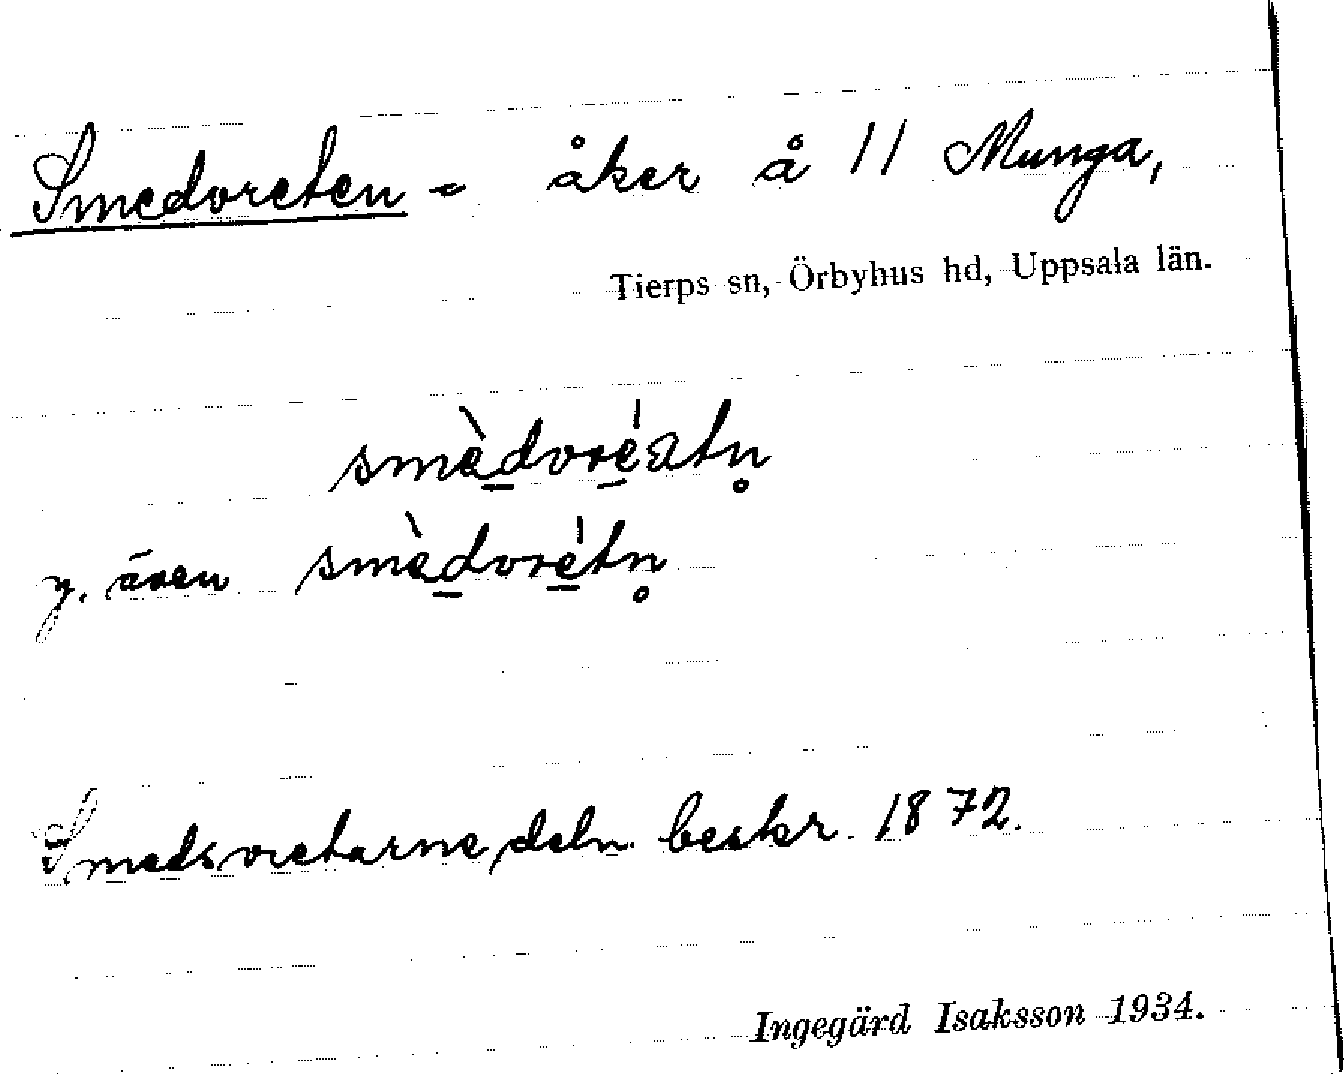 Smedvreten - åker å 11 Munga,
Tierps sn, Örbyhus hd, Uppsala län.
smèdvréatn̥
y. även smèdvrétn̥
Smedsvretarne, deln. beskr. 1872.
Ingegärd Isaksson 1934.